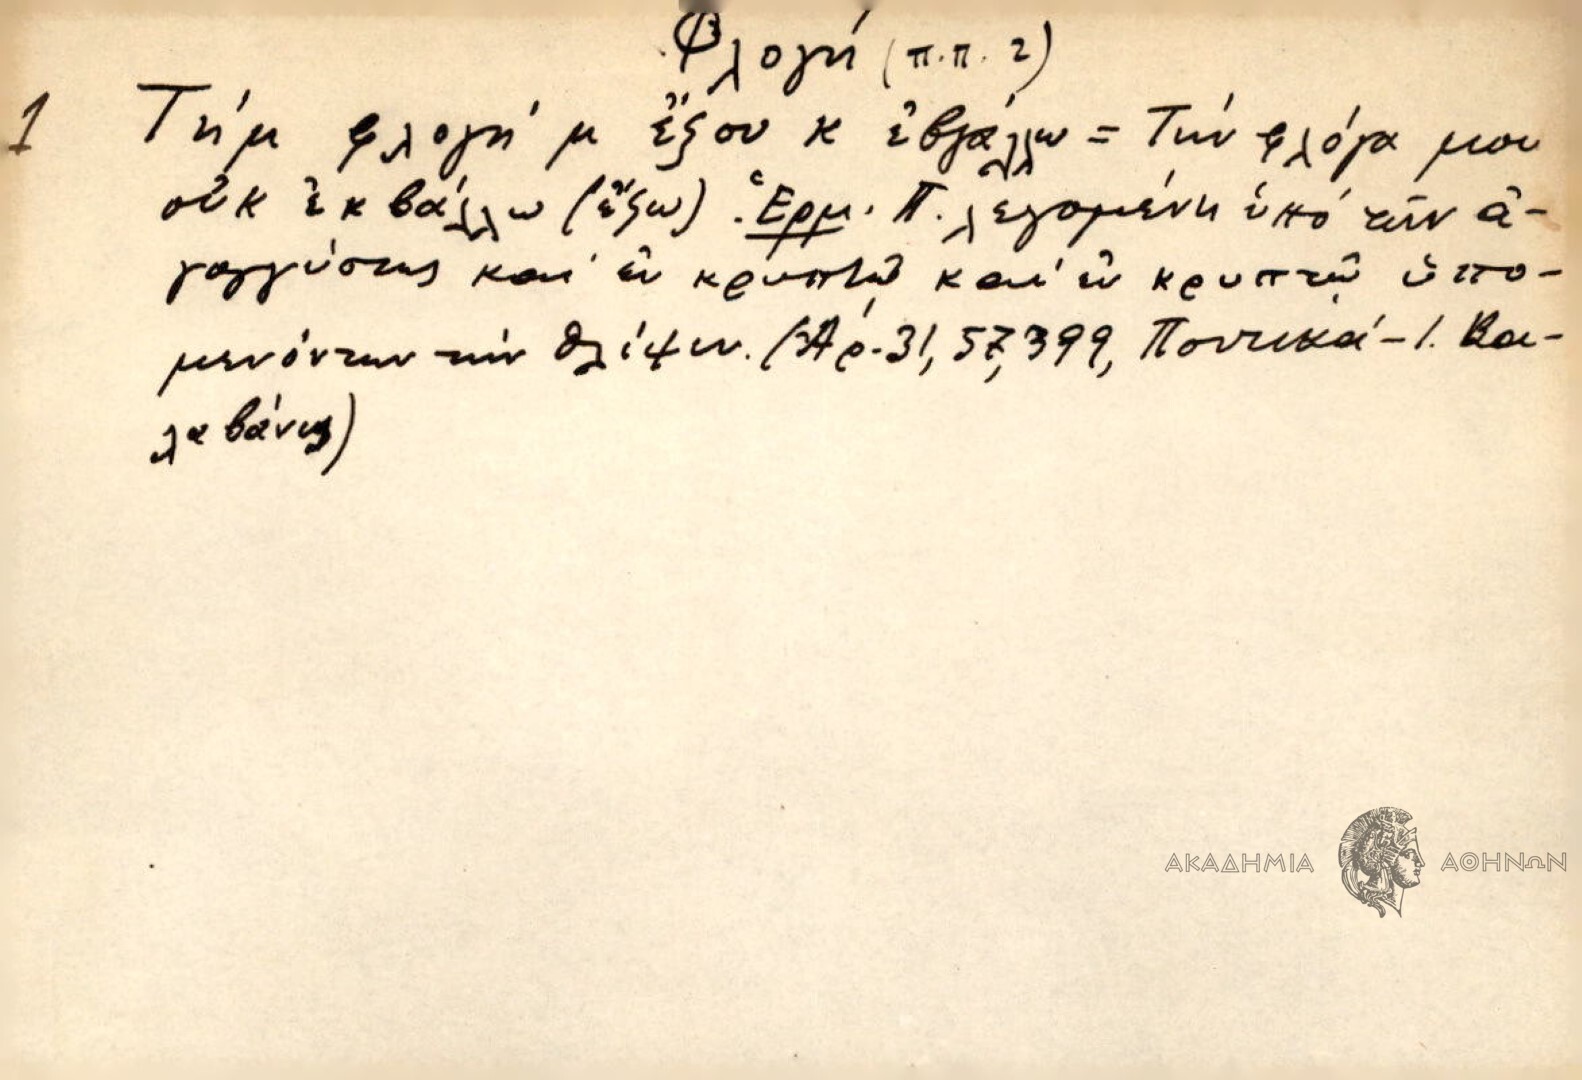 Φλογή (π.π. 2)
1 Τήμ φλογή μ ἔξου κ ἐβγάλλω = Τήν φλόγα μου
οὐκ ἐκβάλλω (ἔξω). Ἑρμ. Π. λεγομένη ὑπό τῶν ἀ-
γογγύστως καί ἐν κρυπτῷ καί ἐν κρυπτῷ ὑπο-
μενόντων τήν θλίψιν. (Ἀρ. 31, 57, 399, Ποντικά - Ι. Βα-
λαβάνης)
ΑΚΑΔΗΜΙΑ ΑΘΗΝΩΝ